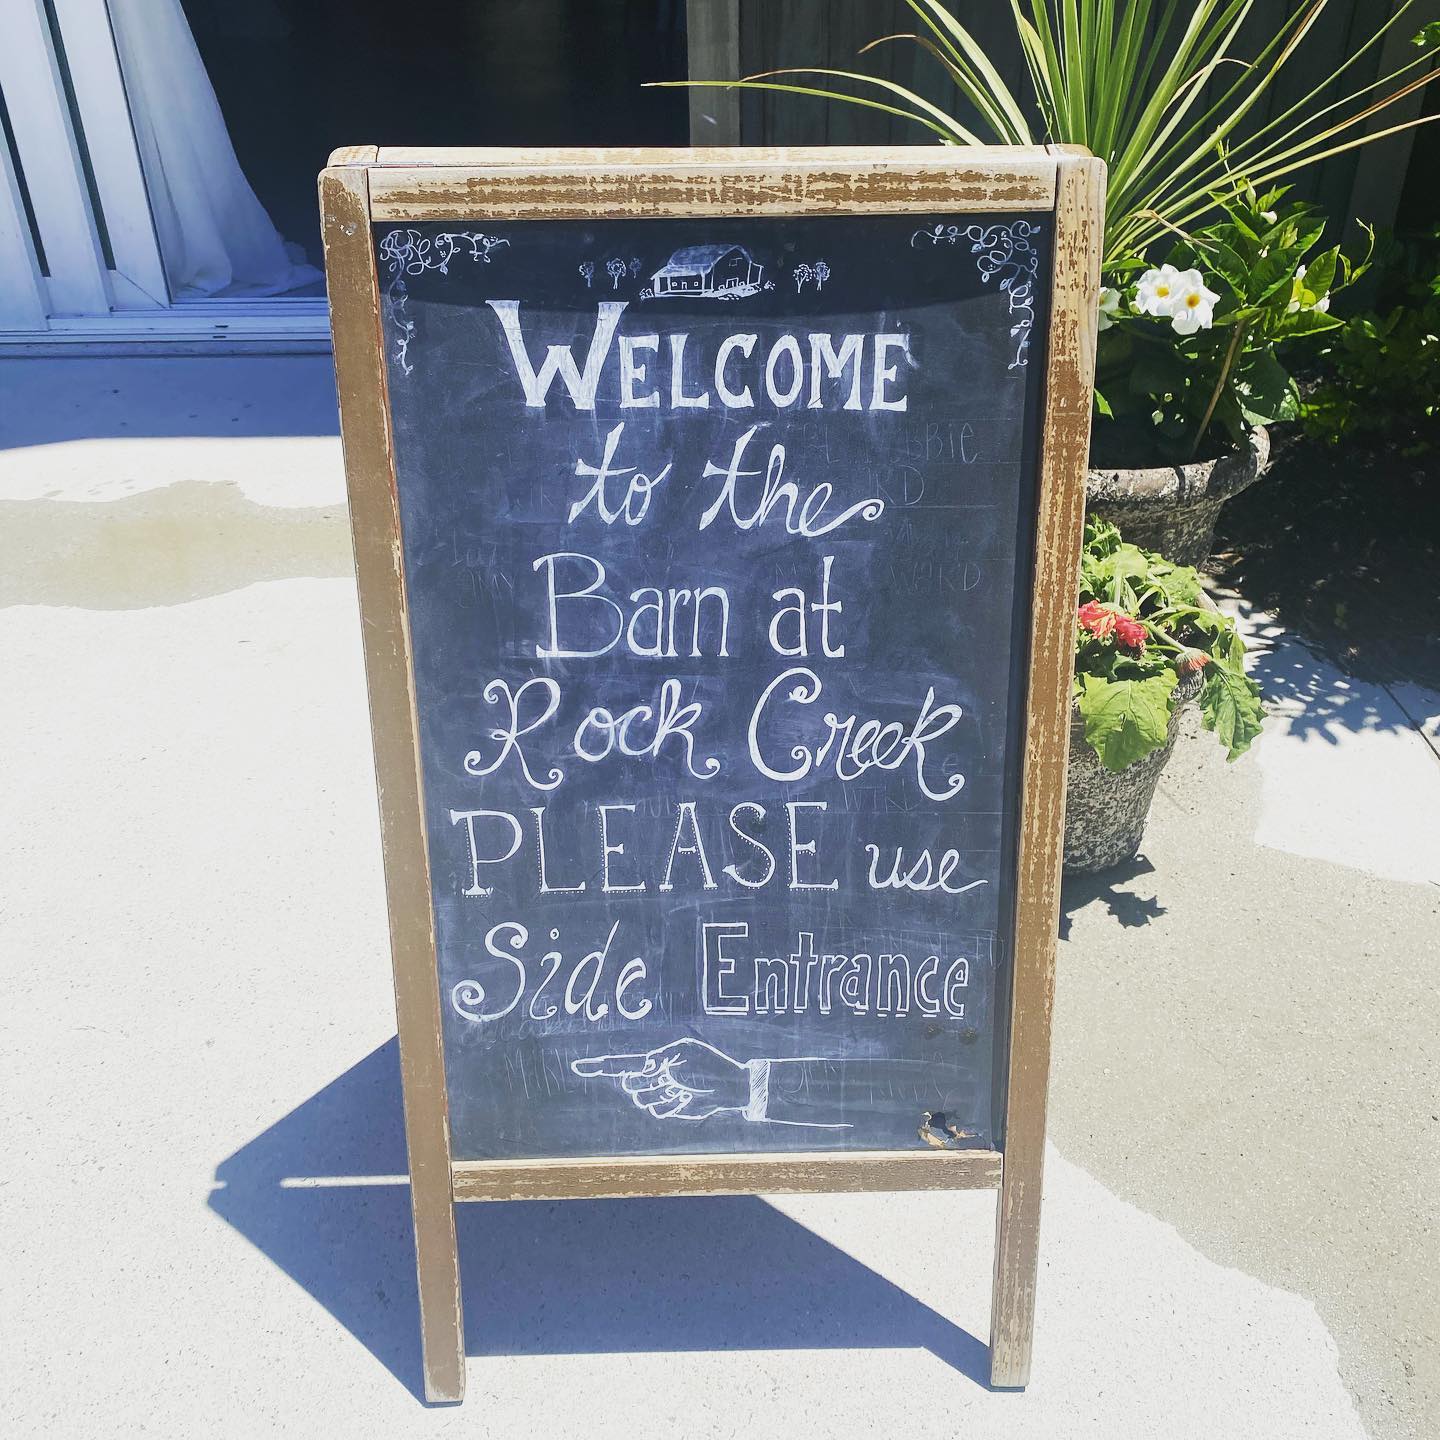 WELCOME
to the
Barn at
Rock Creek
PLEASE use
Side Entrance